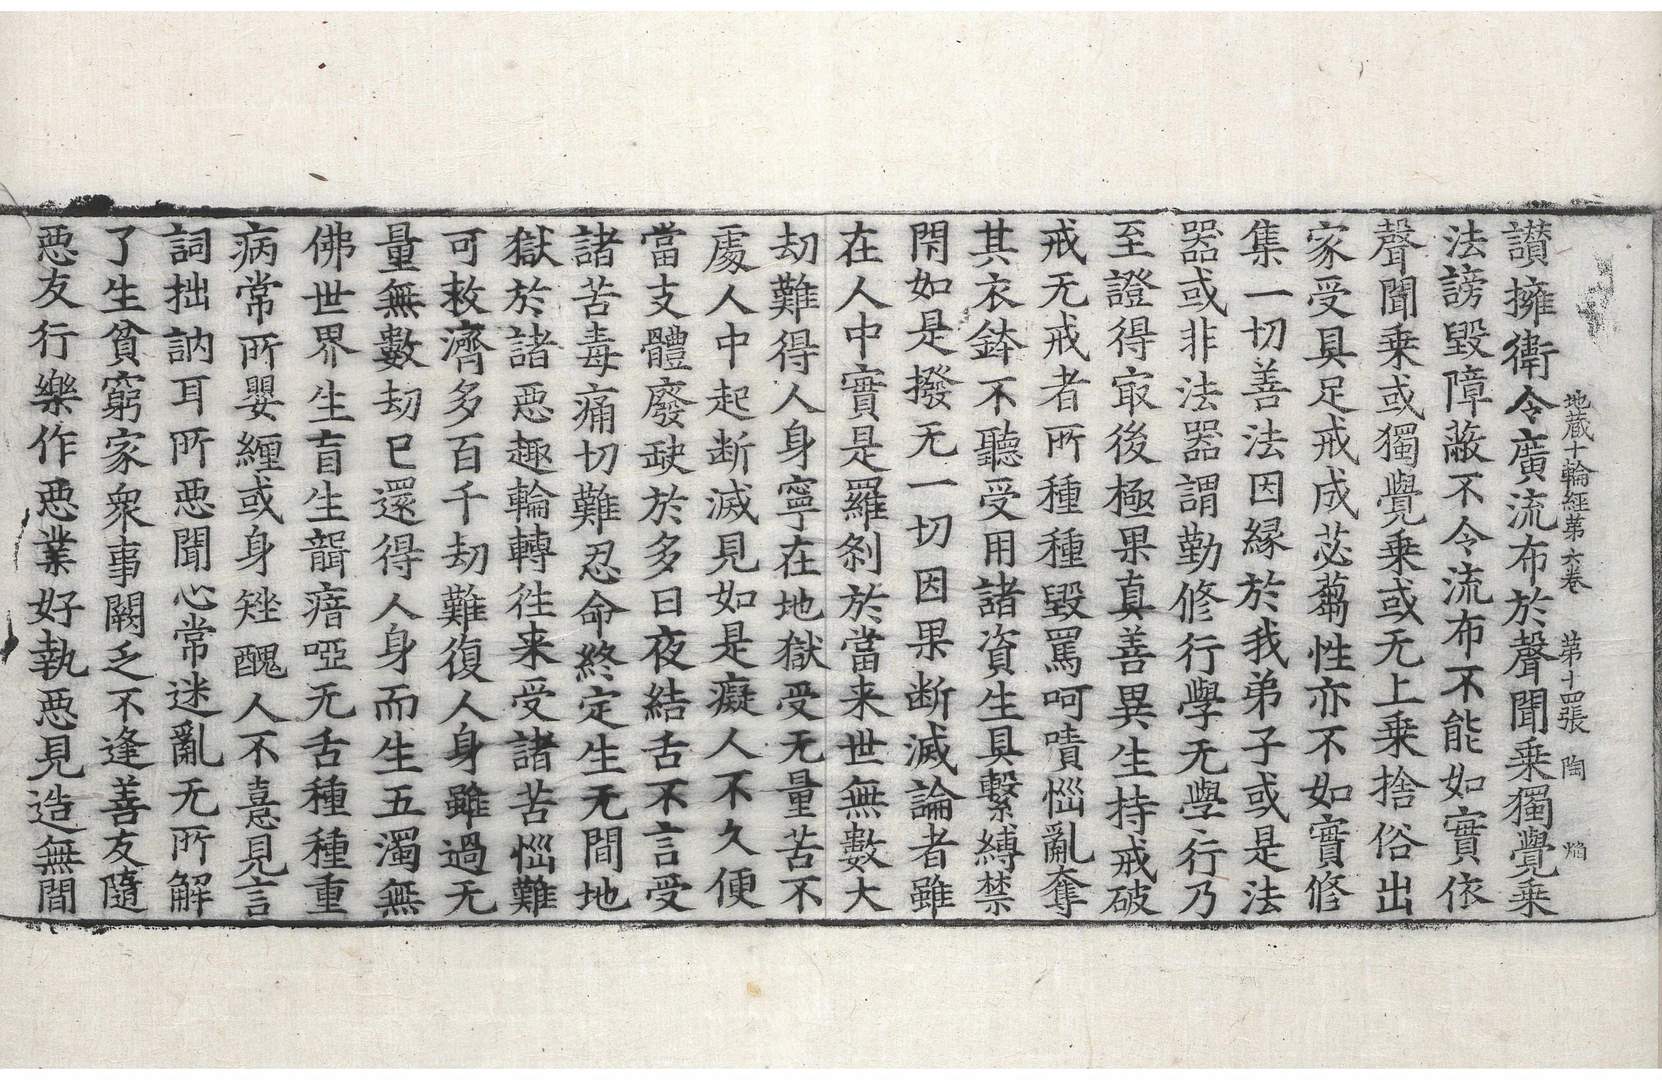 地蔵十輪經苐六卷　苐十四張　陶　焰
讃擁衛令廣流布於聲聞乗獨覺乗
法謗毀障蔽不令流布不能如實依
聲聞乗或獨覺乗或无上乗捨俗出
家受具足戒成苾蒭性亦不如實修
集一切善法因縁於我弟子或是法
器或非法器謂勤修行學无學行乃
至證得㝡後極果真善異生持戒破
戒无戒者所種種毀罵呵嘖惱亂奪
其衣鉢不聽受用諸資生具繫縛禁
閇如是撥无一切因果断滅論者雖
在人中實是羅刹於當来世無數大
劫難得人身寧在地獄受无量苦不
處人中起断滅見如是癡人不久便
當支體廢缺於多日夜結舌不言受
諸苦毒痛切難忍命終定生无間地
獄於諸惡趣輪轉往来受諸苦惱難
可救濟多百千劫難復人身雖過无
量無數劫已還得人身而生五濁無
佛世界生盲生聾瘖瘂无舌種種重
病常所嬰纏或身矬醜人不憙見言
詞拙訥耳所惡聞心常迷亂无所解
了生貧窮家衆事闕乏不逢善友隨
惡友行樂作惡業好執惡見造無間